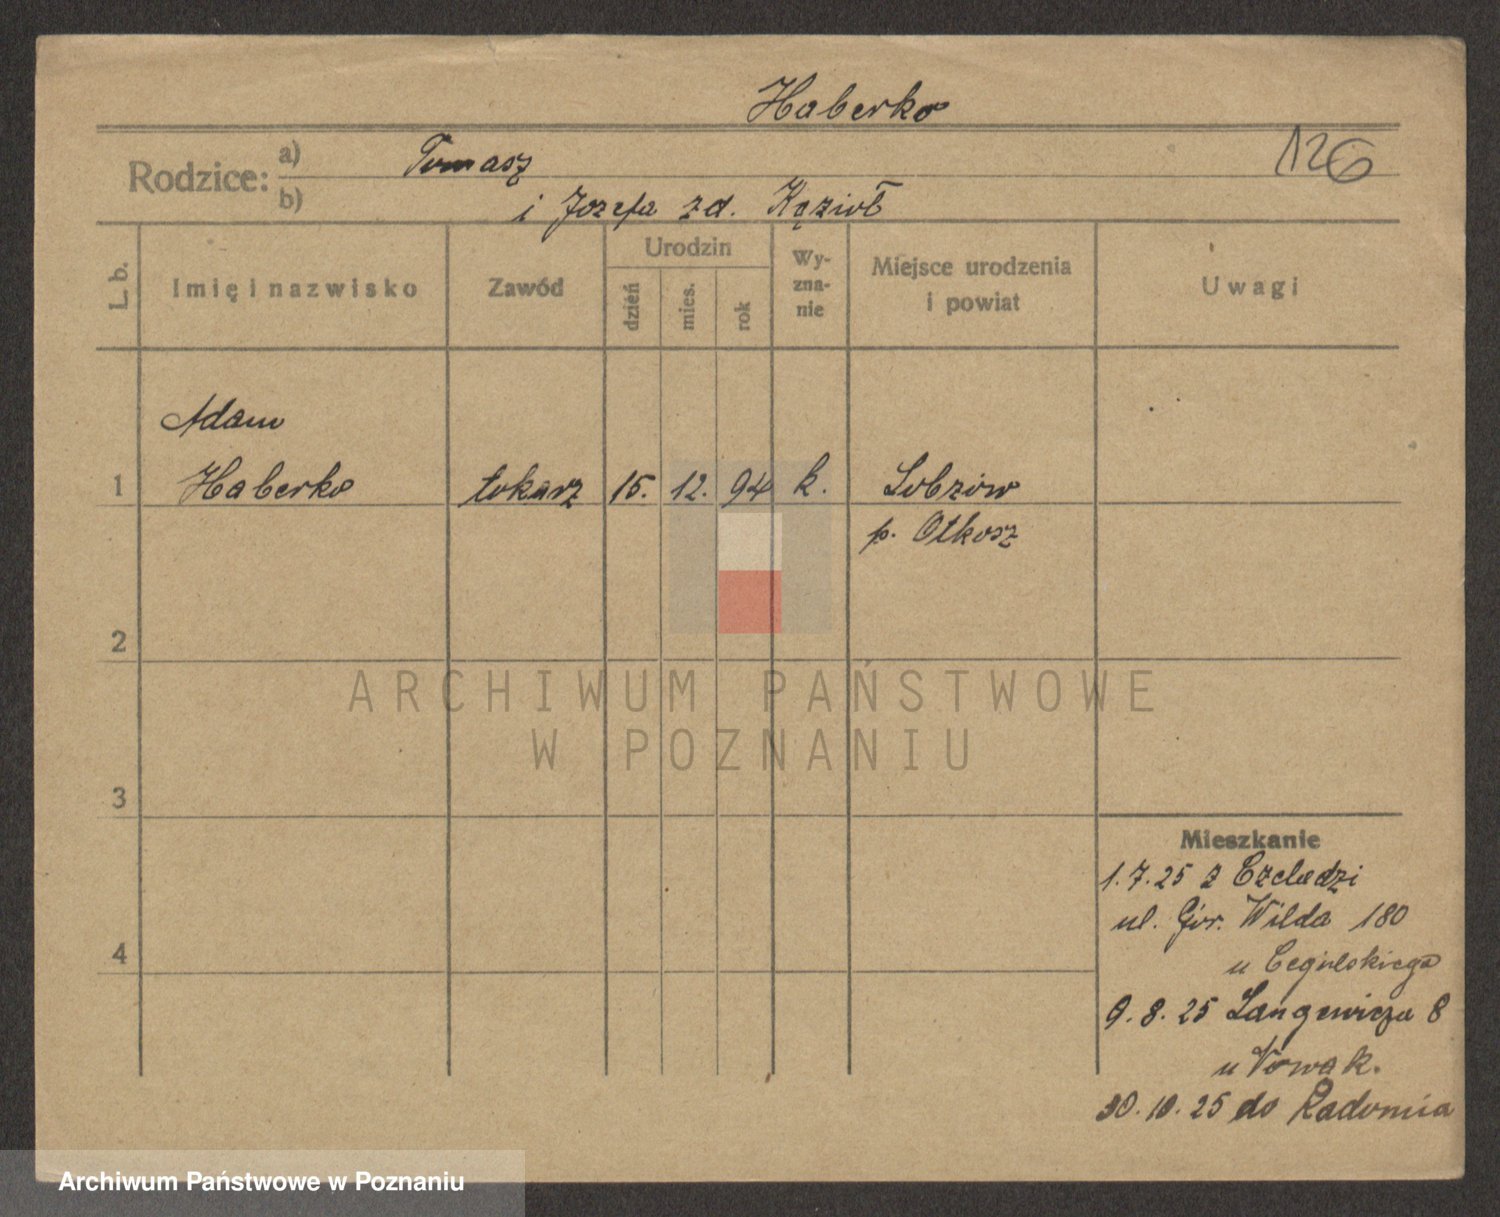 Haberko
126
Rodzice:
a) Tomasz
b) i Jozefa zd. Kozioł
L. b.
Imię i nazwisko
Zawód
Urodzin
dzień
mies.
rok
Wy-
zna-
nie
Miejsce urodzenia
i powiat
Uwagi
Adam
1 Haberko tokarz 15. 12. 94 k. Lobzow
p. Olkosz
2
3
4
ARCHIWUM PAŃSTWOWE
W POZNANIU
Mieszkanie
1.7.25 z Czeladzi
ul. Gór. Wilda 180
u Cegielskiego
9.8.25 Langewicza 8
u Nowak.
30.10.25 do Radomia
Archiwum Państwowe w Poznaniu